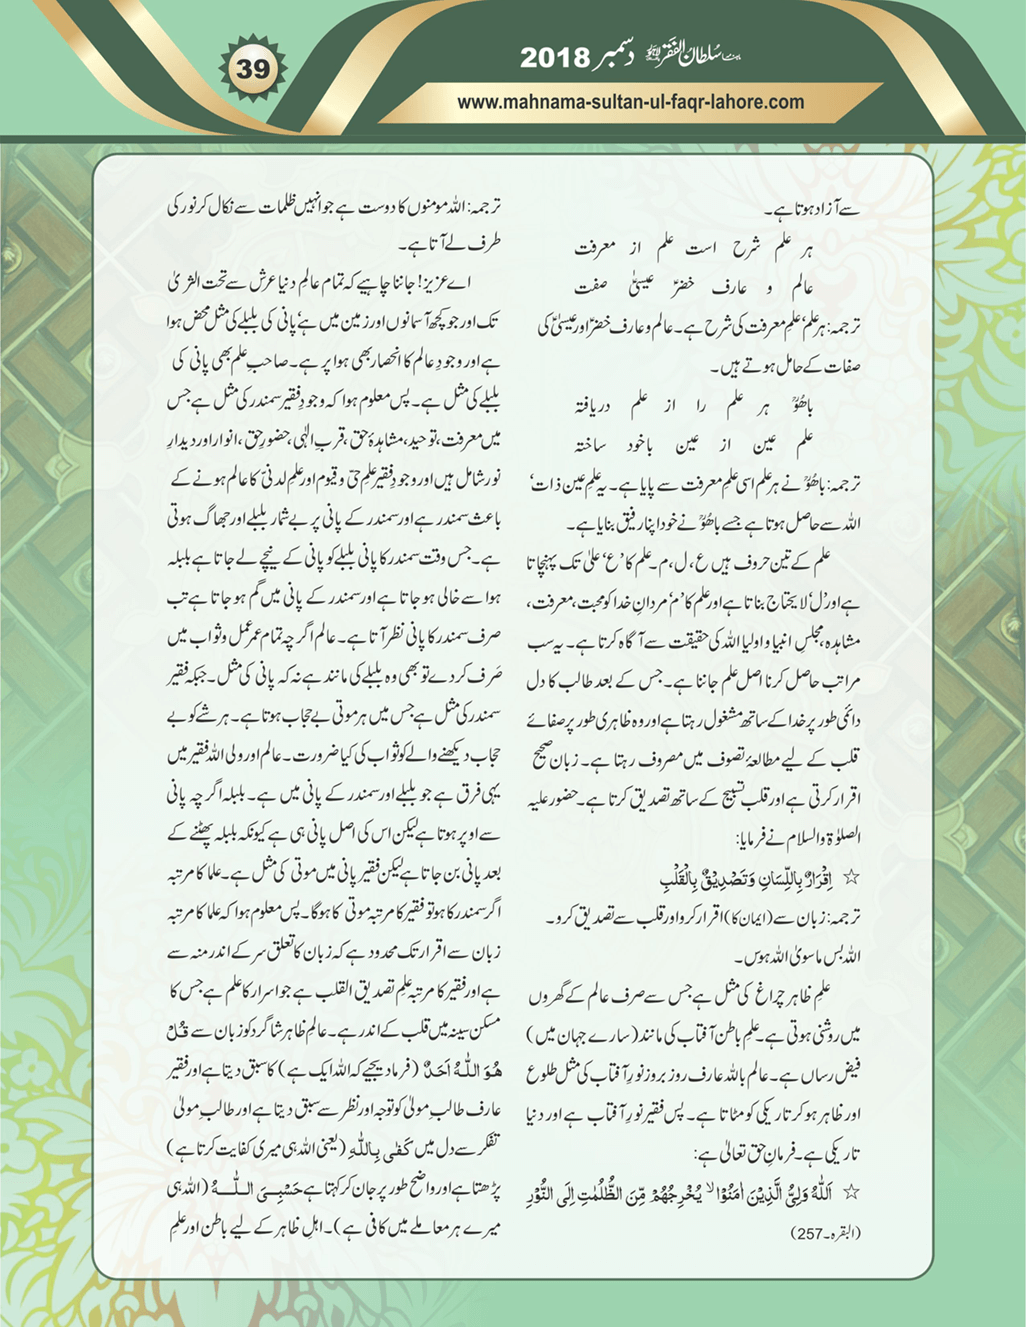 39
ماہنامہ سُلطان الفَقر لاہور دسمبر 2018
www.mahnama-sultan-ul-faqr-lahore.com
سے آزاد ہوتا ہے۔
ہر علم شرح است علم از معرفت
عالم و عارف خضرؑ عیسیٰؑ صفت
ترجمہ: ہر علم‘ علمِ معرفت کی شرح ہے۔ عالم و عارف خضرؑ اور عیسیٰؑ کی
صفات کے حامل ہوتے ہیں۔
باھُوؒ ہر علم را از علم دریافتہ
علم عین از عین باخود ساختہ
ترجمہ: باھُوؒ نے ہر علم اسی علمِ معرفت سے پایا ہے۔ یہ علمِ عین ذات‘
اللہ سے حاصل ہوتا ہے جسے باھُوؒ نے خود اپنا رفیق بنایا ہے۔
علم کے تین حروف ہیں ع، ل، م۔ علم کا ’ع‘ علیٰ تک پہنچاتا
ہے اور ’ل‘ لایحتاج بناتا ہے اور علم کا ’م‘ مردانِ خدا کو محبت، معرفت،
مشاہدہ، مجلسِ انبیا و اولیا اللہ کی حقیقت سے آگاہ کرتا ہے۔ یہ سب
مراتب حاصل کرنا اصل علم جاننا ہے۔ جس کے بعد طالب کا دل
دائمی طور پر خدا کے ساتھ مشغول رہتا ہے اور وہ ظاہری طور پر صفائے
قلب کے لیے مطالعۂ تصوف میں مصروف رہتا ہے۔ زبان صحیح
اقرار کرتی ہے اور قلب تسبیح کے ساتھ تصدیق کرتا ہے۔ حضور علیہ
الصلوٰۃ والسلام نے فرمایا:
☆ اِقْرَارٌ بِاللِّسَانِ وَتَصْدِیْقٌ بِالْقَلْبِ
ترجمہ: زبان سے (ایمان کا) اقرار کرو اور قلب سے تصدیق کرو۔
اللہ بس ماسویٰ اللہ ہوس۔
علمِ ظاہر چراغ کی مثل ہے جس سے صرف عالم کے گھروں
میں روشنی ہوتی ہے۔ علمِ باطن آفتاب کی مانند (سارے جہان میں)
فیض رساں ہے۔ عالم باللہ عارف روز بروز نورِ آفتاب کی مثل طلوع
اور ظاہر ہو کر تاریکی کو مٹاتا ہے۔ پس فقیر نورِ آفتاب ہے اور دنیا
تاریکی ہے۔ فرمانِ حق تعالیٰ ہے:
☆ اَللّٰهُ وَلِیُّ الَّذِیْنَ اٰمَنُوْا ۙ یُخْرِجُهُمْ مِّنَ الظُّلُمٰتِ اِلَی النُّوْرِ
(البقرہ۔257)
ترجمہ: اللہ مومنوں کا دوست ہے جو انہیں ظلمات سے نکال کر نور کی
طرف لے آتا ہے۔
اے عزیز! جاننا چاہیے کہ تمام عالمِ دنیا عرش سے تحت الثریٰ
تک اور جو کچھ آسمانوں اور زمین میں ہے‘ پانی کی بلبلے کی مثل محض ہوا
ہے اور وجودِ عالم کا انحصار بھی ہوا پر ہے۔ صاحبِ علم بھی پانی کی
بلبلے کی مثل ہے۔ پس معلوم ہوا کہ وجودِ فقیر سمندر کی مثل ہے جس
میں معرفت، توحید، مشاہدۂ حق، قربِ الٰہی، حضورِ حق، انوار اور دیدارِ
نور شامل ہیں اور وجودِ فقیر علمِ حیّ و قیوم اور علمِ لدنیّ کا عالم ہونے کے
باعث سمندر ہے اور سمندر کے پانی پر بے شمار بلبلے اور جھاگ ہوتی
ہے۔ جس وقت سمندر کا پانی بلبلے کو پانی کے نیچے لے جاتا ہے بلبلہ
ہوا سے خالی ہو جاتا ہے اور سمندر کے پانی میں گم ہو جاتا ہے تب
صرف سمندر کا پانی نظر آتا ہے۔ عالم اگرچہ تمام عمر عمل و ثواب میں
صَرف کر دے تو بھی وہ بلبلے کی مانند ہے نہ کہ پانی کی مثل۔ جبکہ فقیر
سمندر کی مثل ہے جس میں ہر موتی بے حجاب ہوتا ہے۔ ہر شے کو بے
حجاب دیکھنے والے کو ثواب کی کیا ضرورت۔ عالم اور ولی اللہ فقیر میں
یہی فرق ہے جو بلبلے اور سمندر کے پانی میں ہے۔ بلبلہ اگرچہ پانی
سے اوپر ہوتا ہے لیکن اس کی اصل پانی ہی ہے کیونکہ بلبلہ پھٹنے کے
بعد پانی بن جاتا ہے لیکن فقیر پانی میں موتی کی مثل ہے۔ علما کا مرتبہ
اگر سمندر کا ہو تو فقیر کا مرتبہ موتی کا ہوگا۔ پس معلوم ہوا کہ علما کا مرتبہ
زبان سے اقرار تک محدود ہے کہ زبان کا تعلق سر کے اندر منہ سے
ہے اور فقیر کا مرتبہ علمِ تصدیق القلب ہے جو اسرار کا علم ہے جس کا
مسکن سینہ میں قلب کے اندر ہے۔ عالمِ ظاہر شاگرد کو زبان سے قُلْ
هُوَ اللّٰهُ اَحَدٌ (فرما دیجیے کہ اللہ ایک ہے) کا سبق دیتا ہے اور فقیر
عارف طالبِ مولیٰ کو توجہ اور نظر سے سبق دیتا ہے اور طالبِ مولیٰ
تفکر سے دل میں كَفٰی بِاللّٰهِ (یعنی اللہ ہی میری کفایت کرتا ہے)
پڑھتا ہے اور واضح طور پر جان کر کہتا ہے حَسْبِیَ اللّٰهُ (اللہ ہی
میرے ہر معاملے میں کافی ہے)۔ اہلِ ظاہر کے لیے باطن اور علمِ